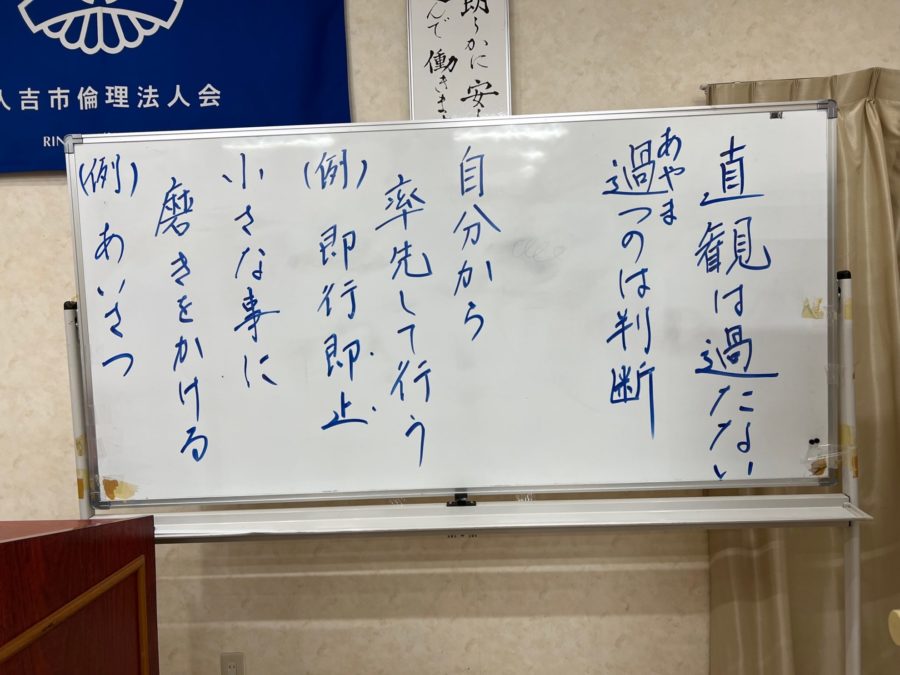 朗らかに安
んで働きま
人吉市倫理法人会
RIN
直観は過たない
あやま
過つのは判断
自分から
率先して行う
(例)即行即止
小さな事に
磨きをかける
(例)あいさつ